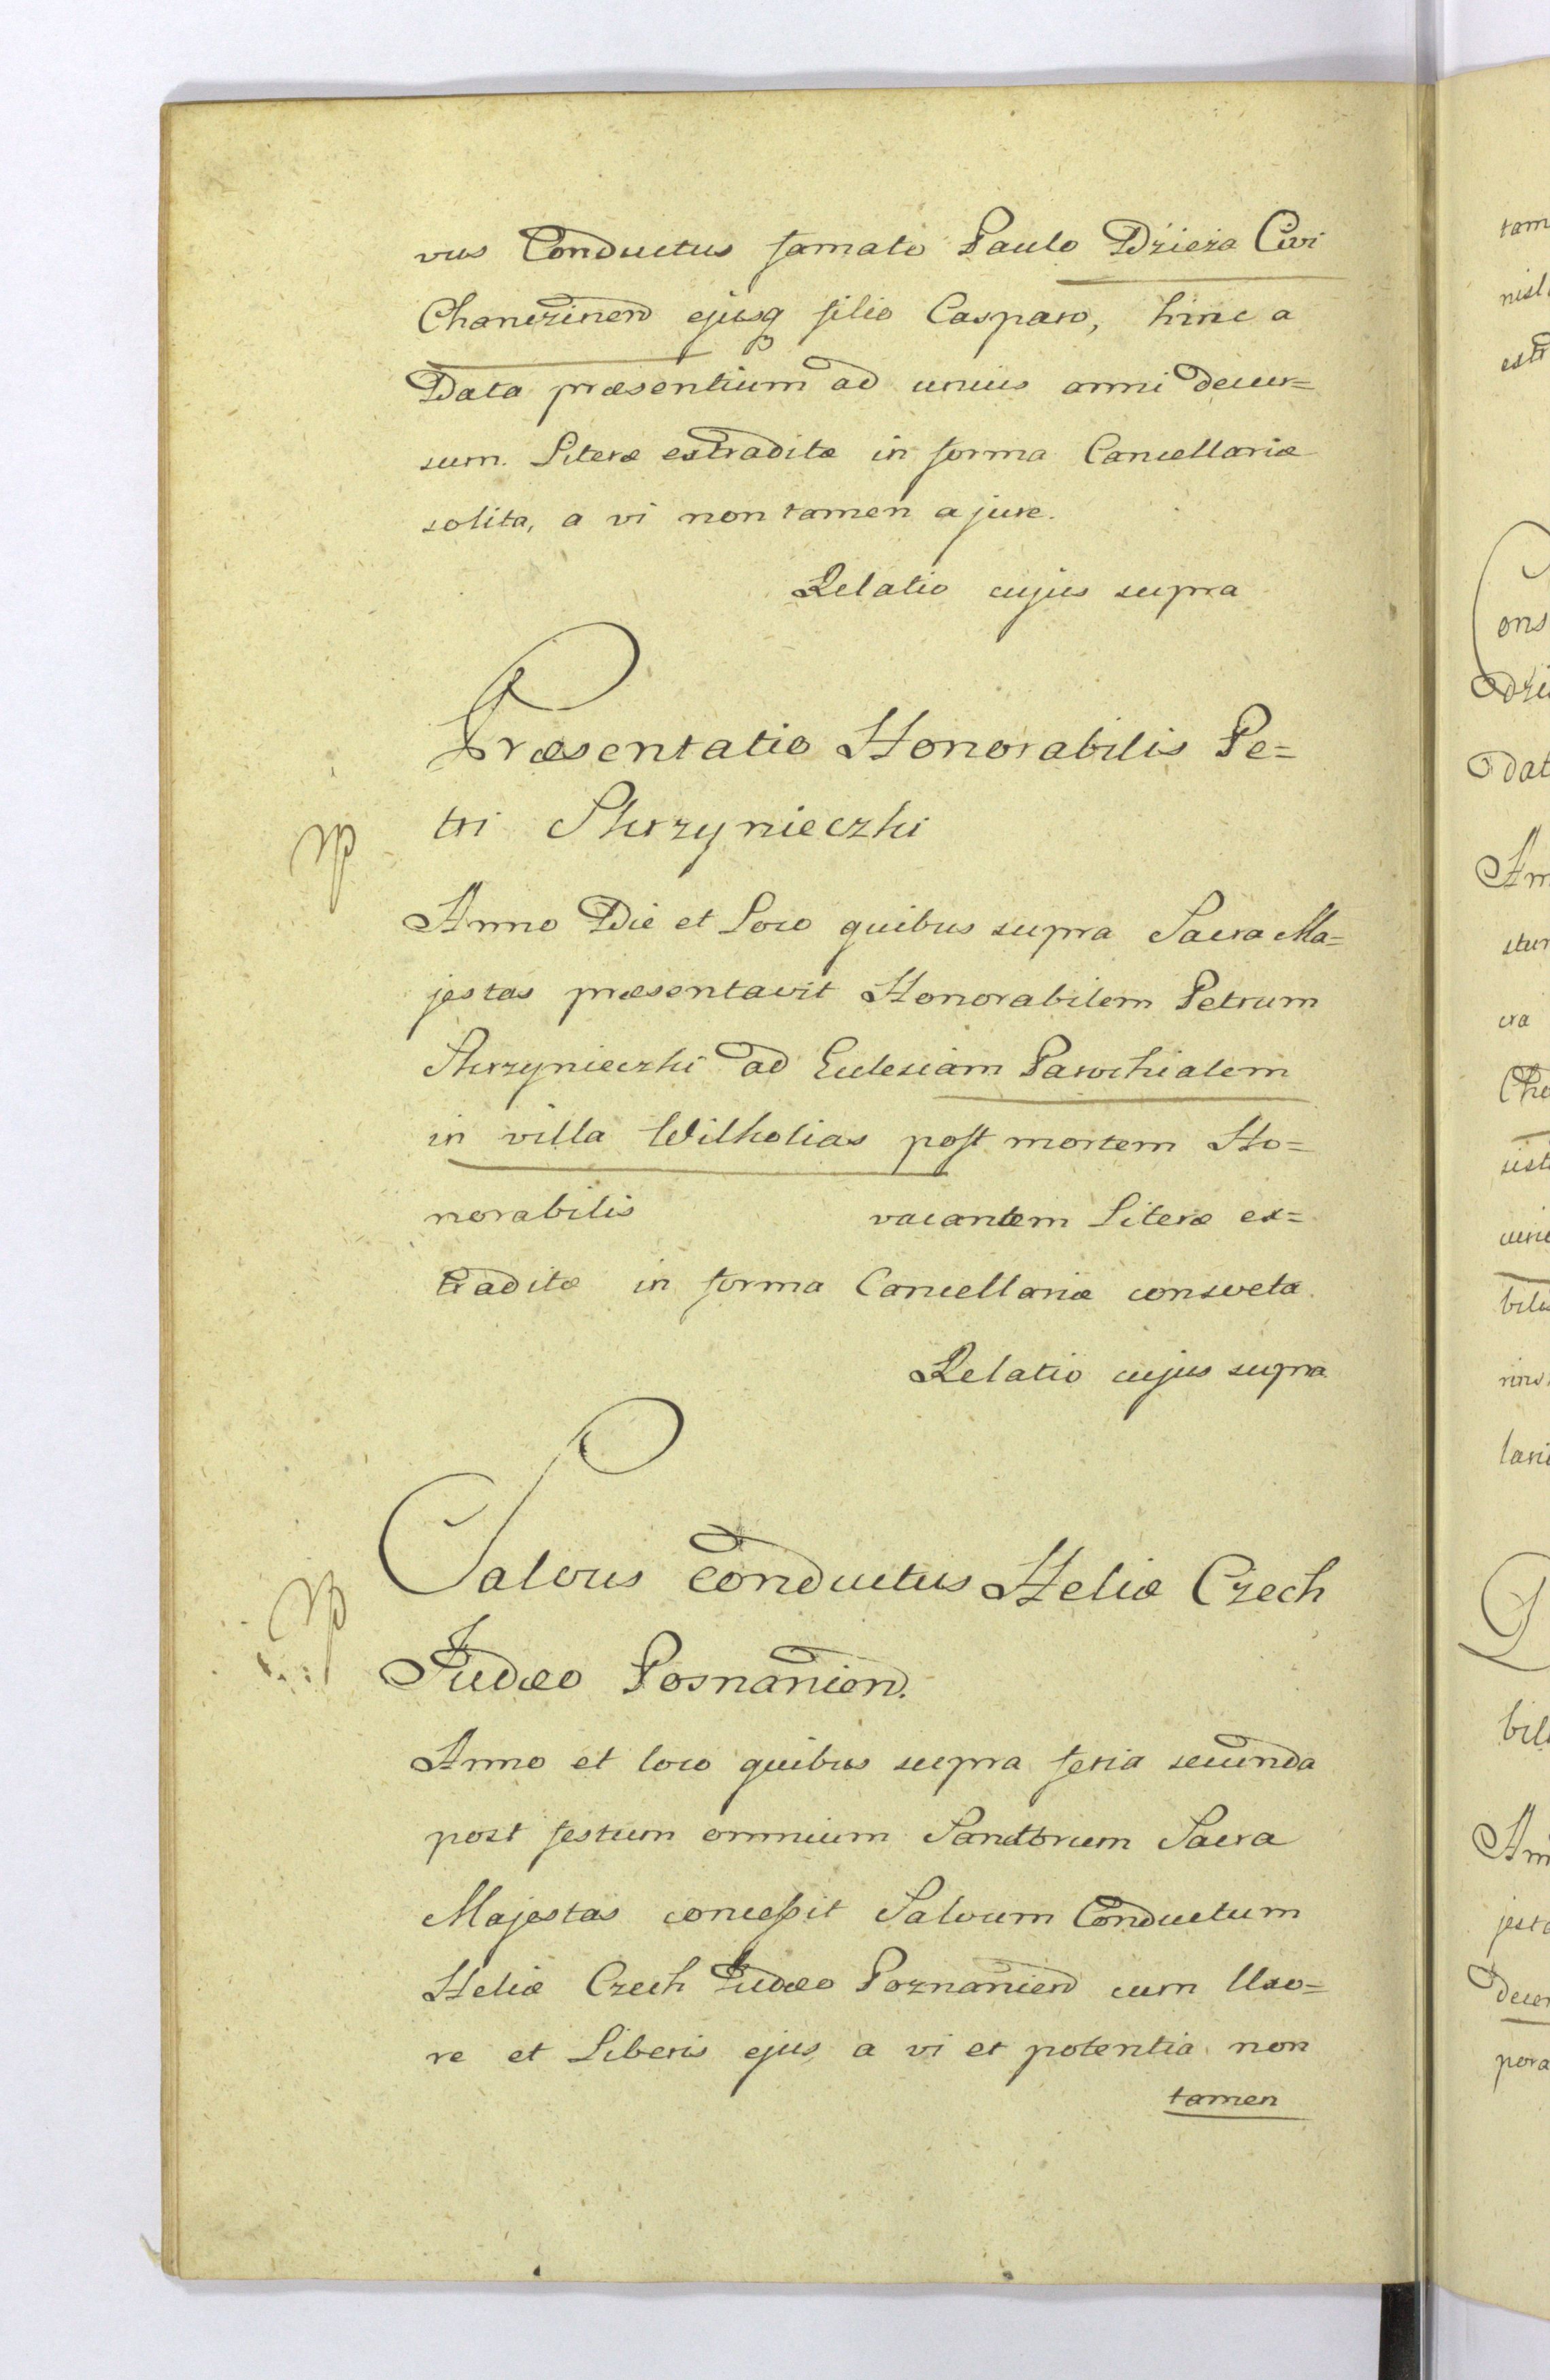 vus Conductus famato Paulo Dzieza Civi
ejusq filio Casparo, hinc a
Data præsentium ad unius anni decur=
sum. Literæ extraditæ in forma Cancellariæ
solita, a vi non tamen a jure.
Relatio cujus supra
Præsentatio Honorabilis Pe=
tri Skrzynieczki
Anno Die et Loco quibus supra Sacra Ma=
jestas præsentavit Honorabilem Petrum
Skrzynieczki ad Eclesiam Parochialem
in villa post mortem Ho=
norabilis vacantem Literæ ex=
traditæ in forma Cancellariæ consveta.
Relatio cujus supra
Salvus Conductus Heliæ Czech
Judæo Posnanien.
Anno et loco quibus supra feria secunda
post festum omnium Sanctorum Sacra
Majestas conceßit Salvum Conductum
Heliæ Czech Judæo Poznanien cum Uxo=
re et Liberis ejus a vi et potentia non
tamen